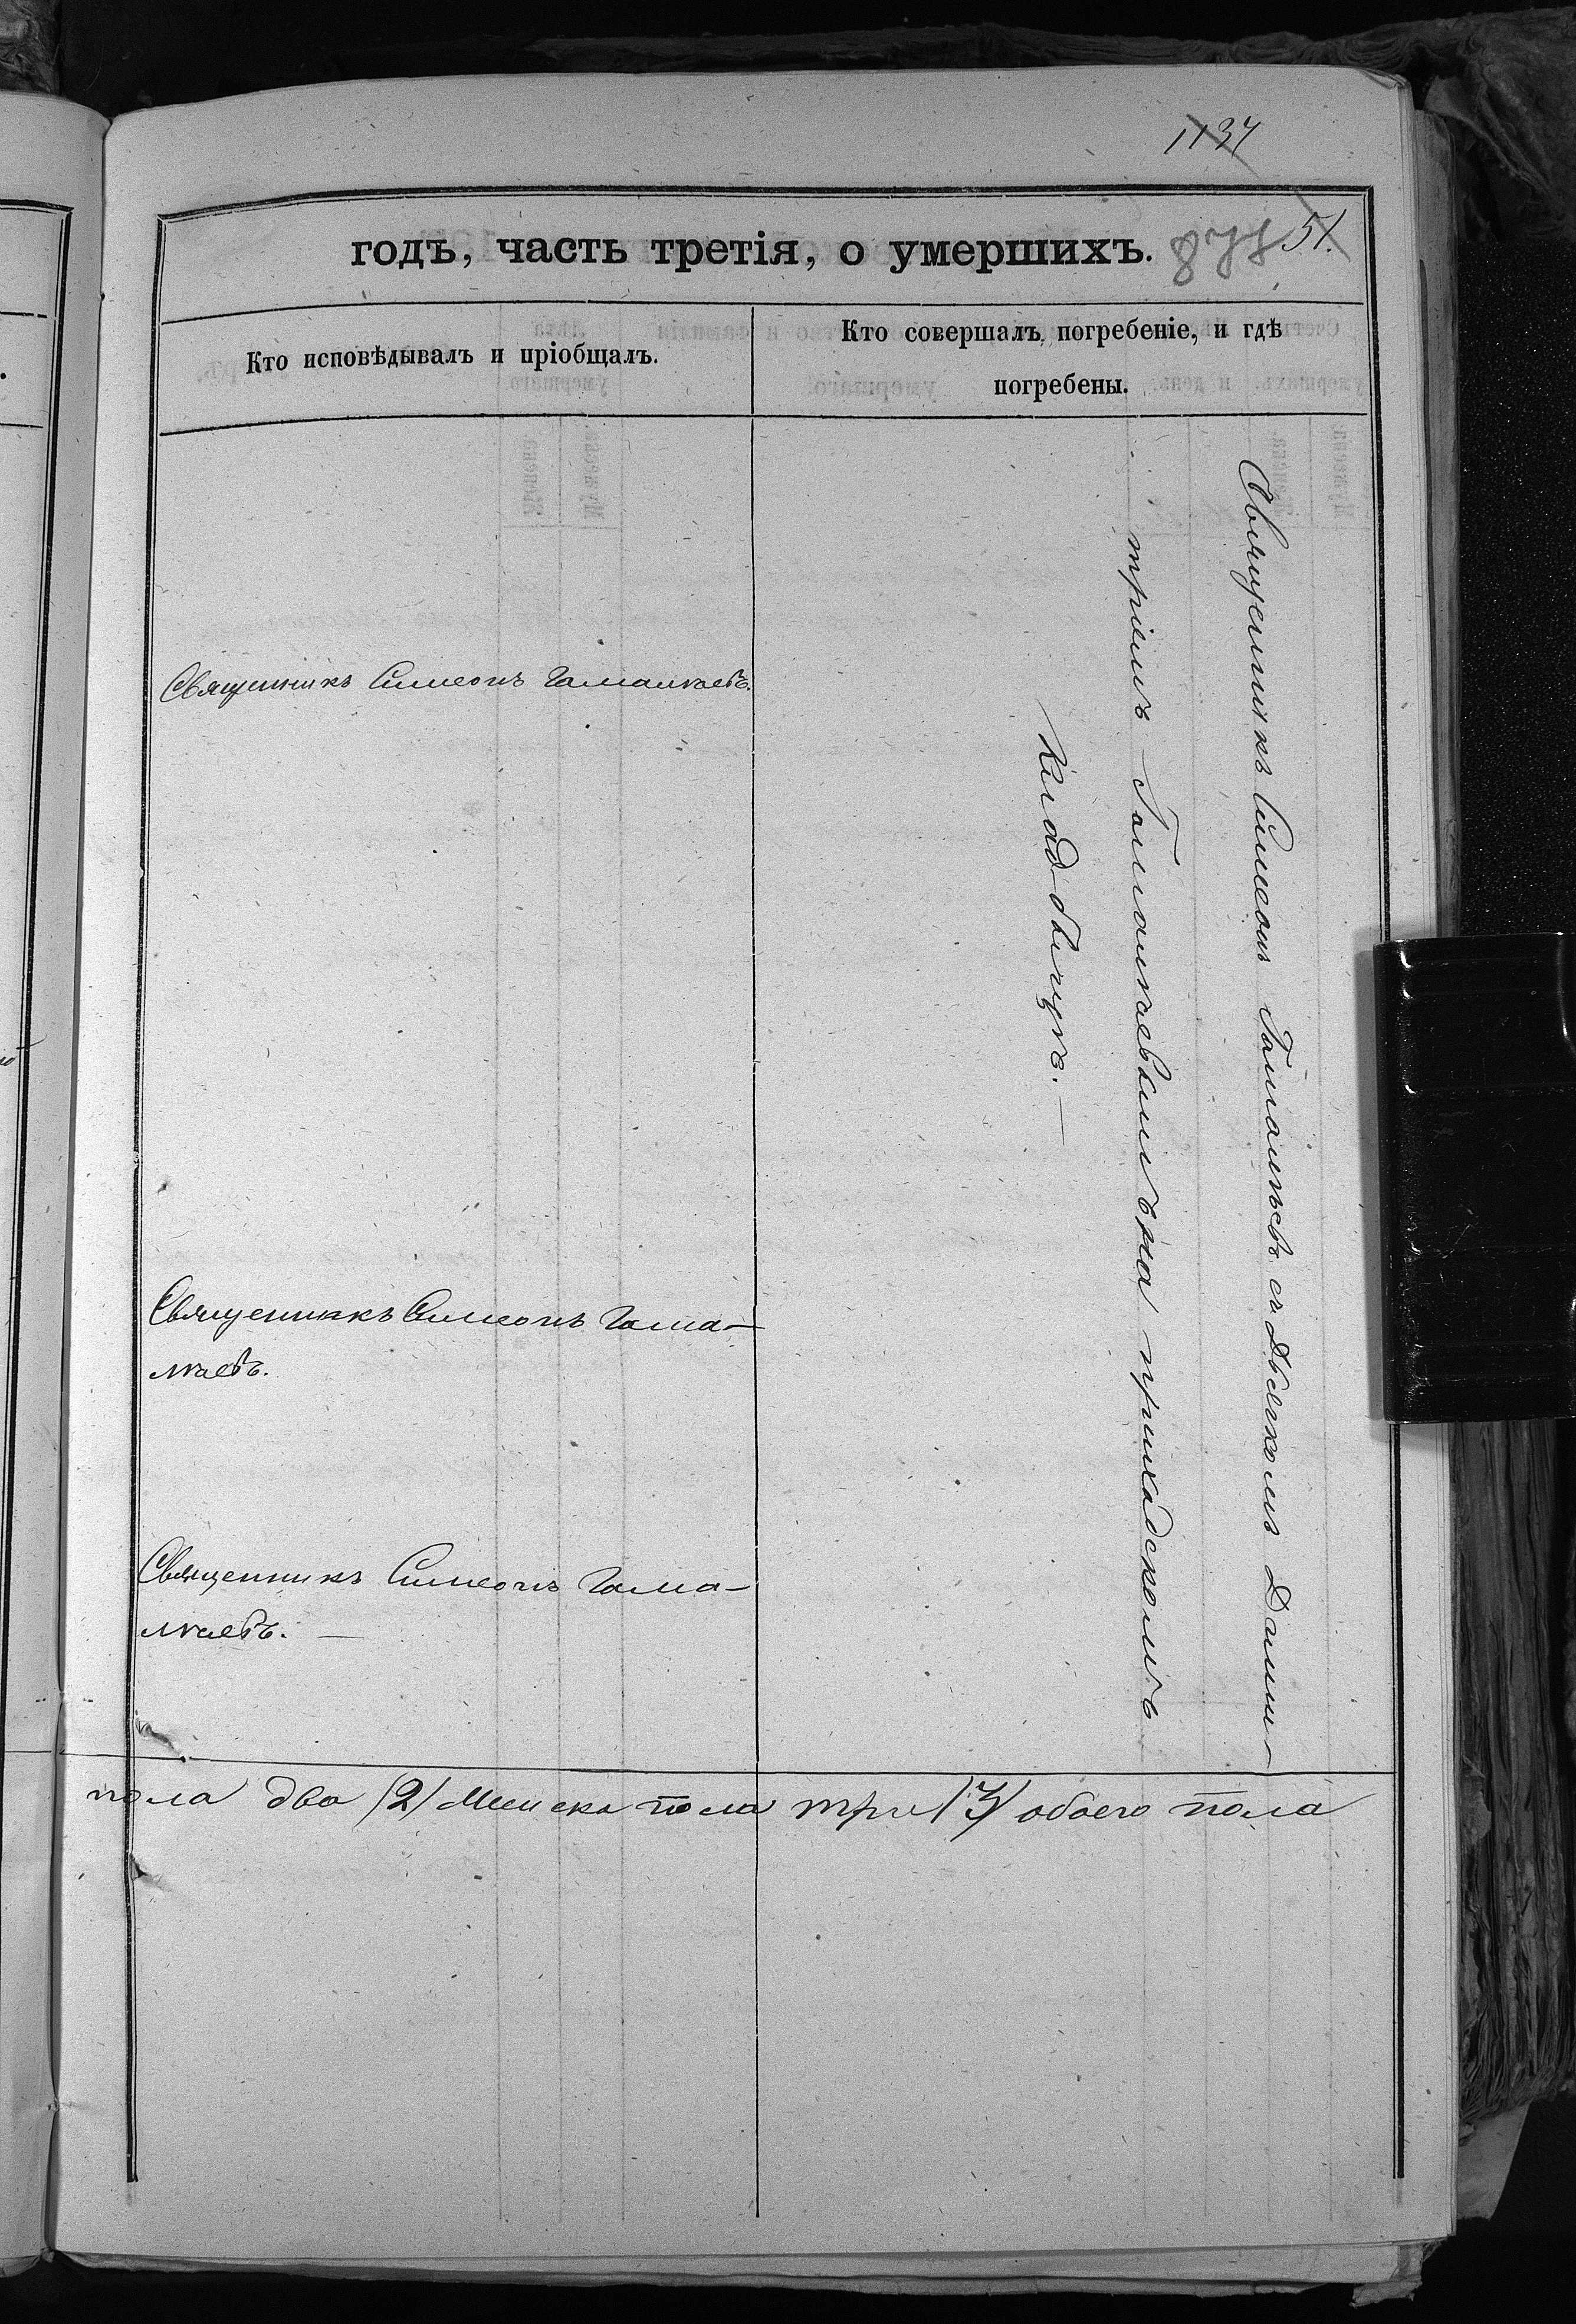 1137
годъ, часть третія, о умершихъ.
51.
Кто исповѣдывалъ и пріобщалъ.
Кто совершалъ погребеніе, и гдѣ
погребены.
Священникъ Симеонъ Гамалкаевъ.
Священникъ Симеонъ Гама-
лкаевъ.
Священникъ Симеонъ Гама-
лкаевъ. —
Священникъ Симеонъ Гамалкаевъ съ Дьячкомъ Дими-
тріемъ Гамалкаевымъ на приходскомъ
Кладбищѣ. —
пола два (2) Женска пола три (3) обоего пола